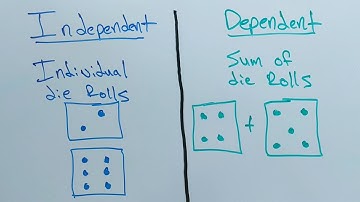 Independent
Individual
die Rolls
Dependent
Sum of
die Rolls
+